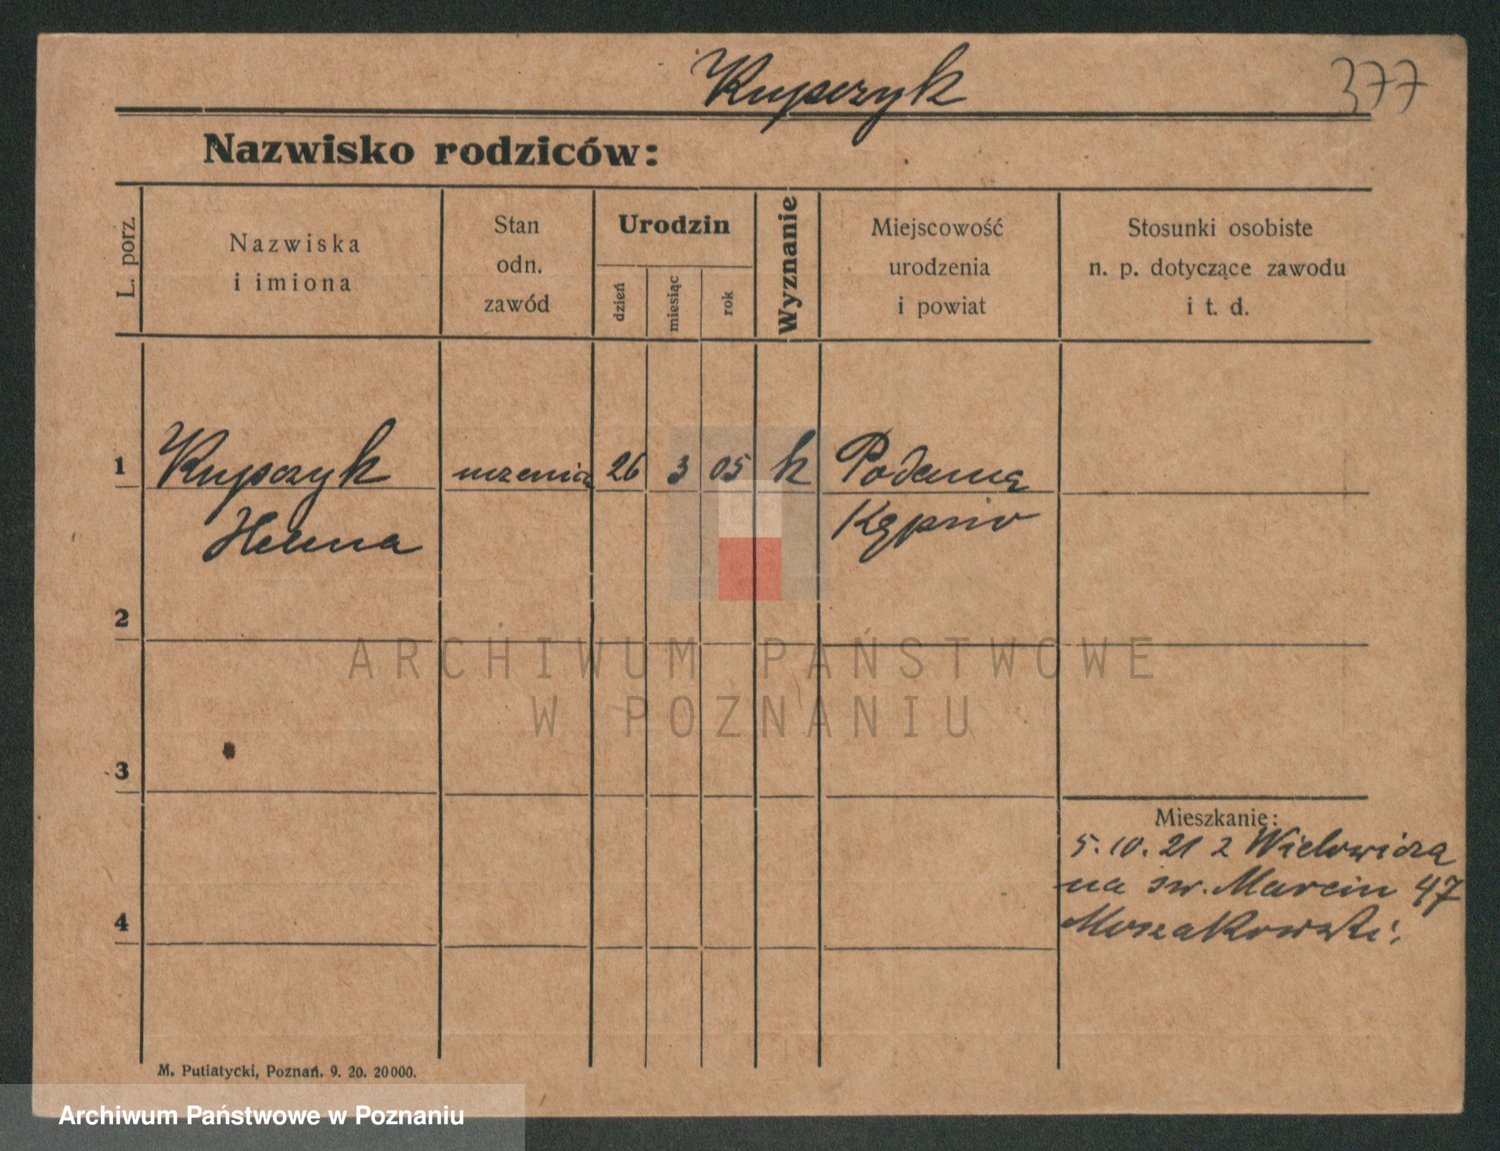 Kupczyk
377
Nazwisko rodziców:
L. porz.
Nazwiska
i imiona
Stan
odn.
zawód
Urodzin
dzień
miesiąc
rok
Wyznanie
Miejscowość
urodzenia
i powiat
Stosunki osobiste
n. p. dotyczące zawodu
i t. d.
1 Kupczyk 26 3 05 k
Kępno
2
ARCHIWUM PAŃSTWOWE
W POZNANIU
3
Mieszkanie:
5.10.21 z
na św. Marcin 47
4 Moszakowski.
M. Putiatycki, Poznań. 9. 20. 20000.
Archiwum Państwowe w Poznaniu